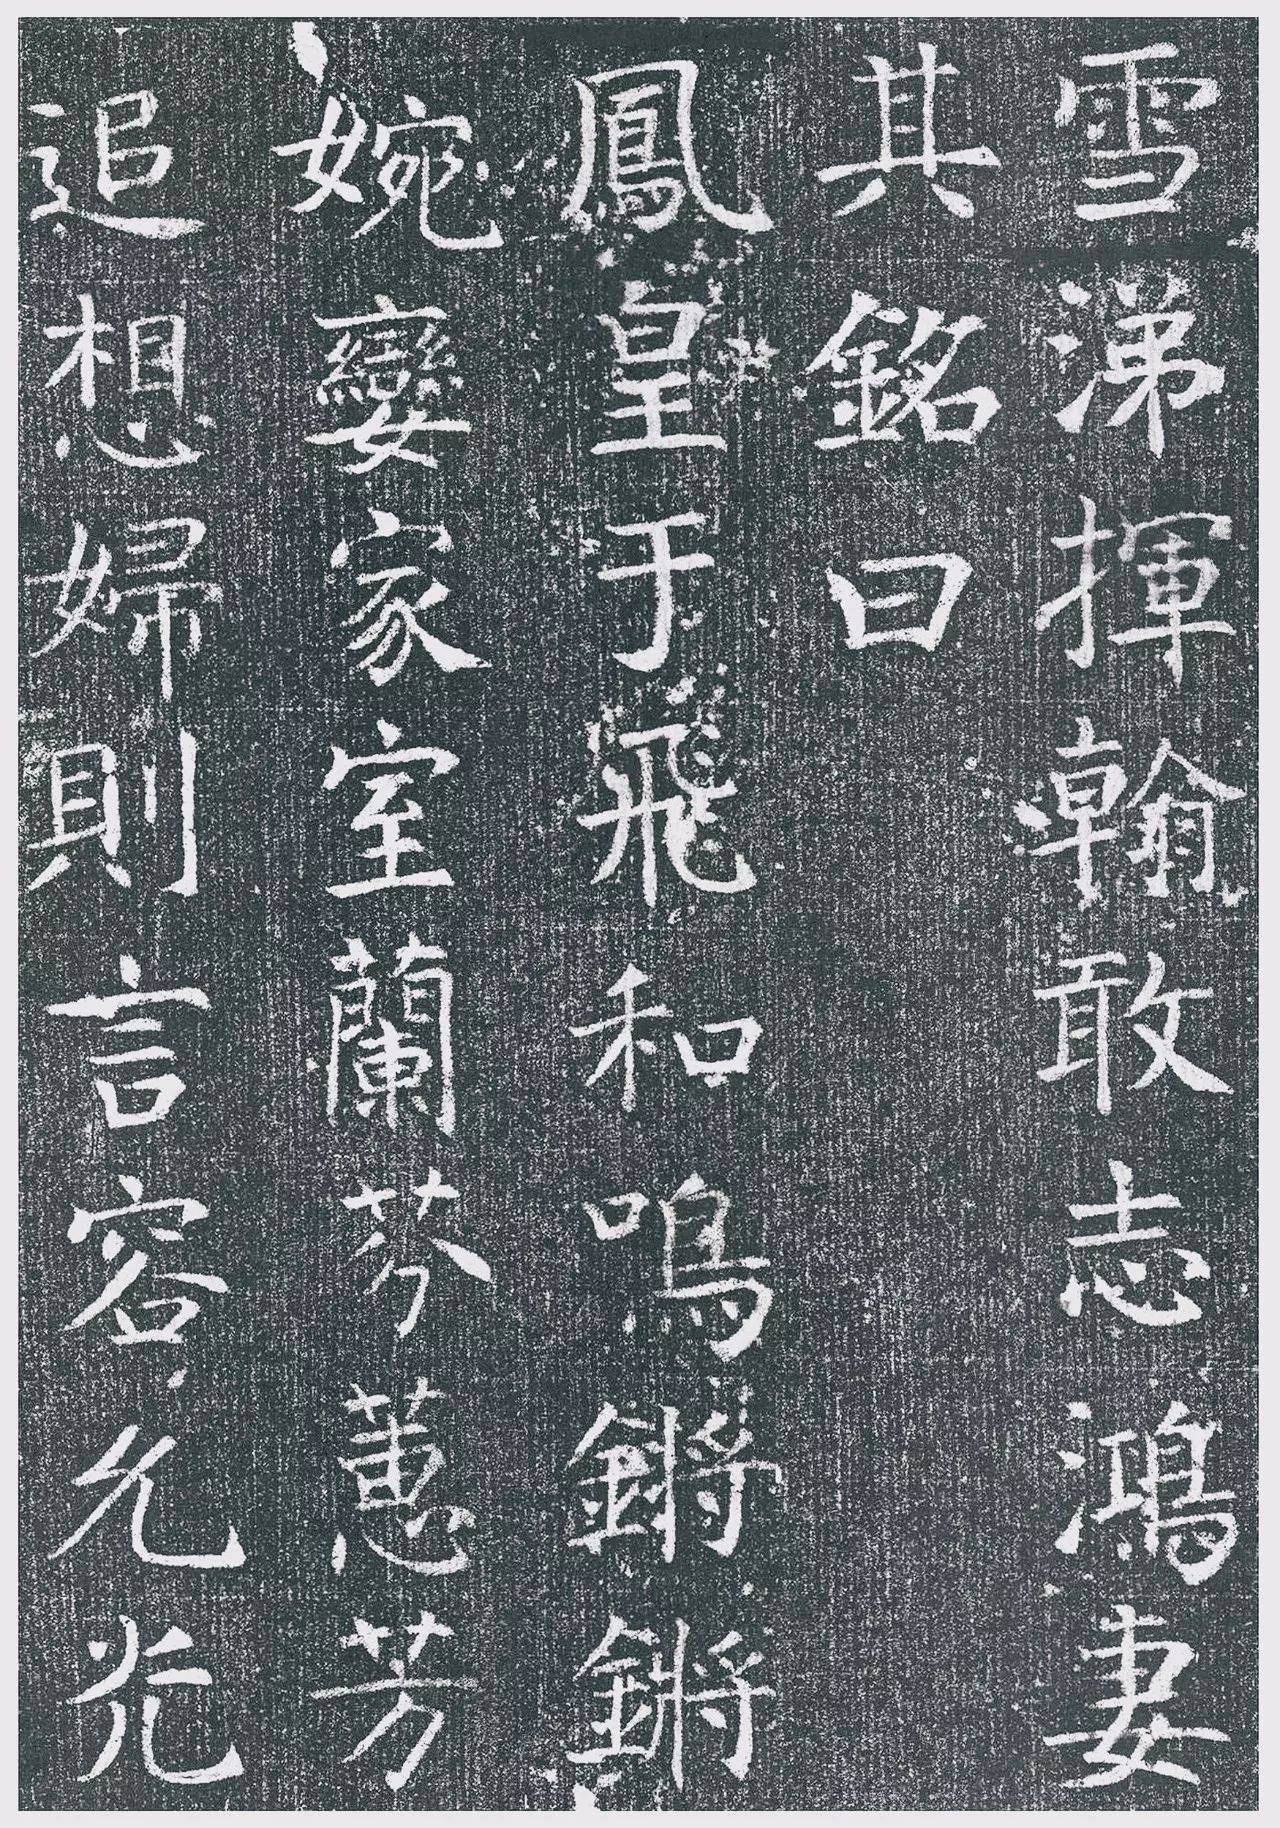 雪涕揮翰敢志鴻妻
其銘曰
鳳皇于飛和鳴鏘鏘
婉孌家室蘭芬蕙芳
追想婦則言容允光